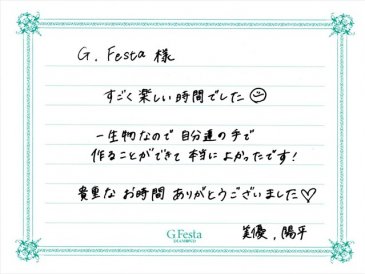 G. Festa 様
すごく楽しい時間でした☺
一生物なので自分達の手で
作ることができて本当によかったです！
貴重なお時間ありがとうございました♡
G.Festa
DIAMOND
美優, 陽平